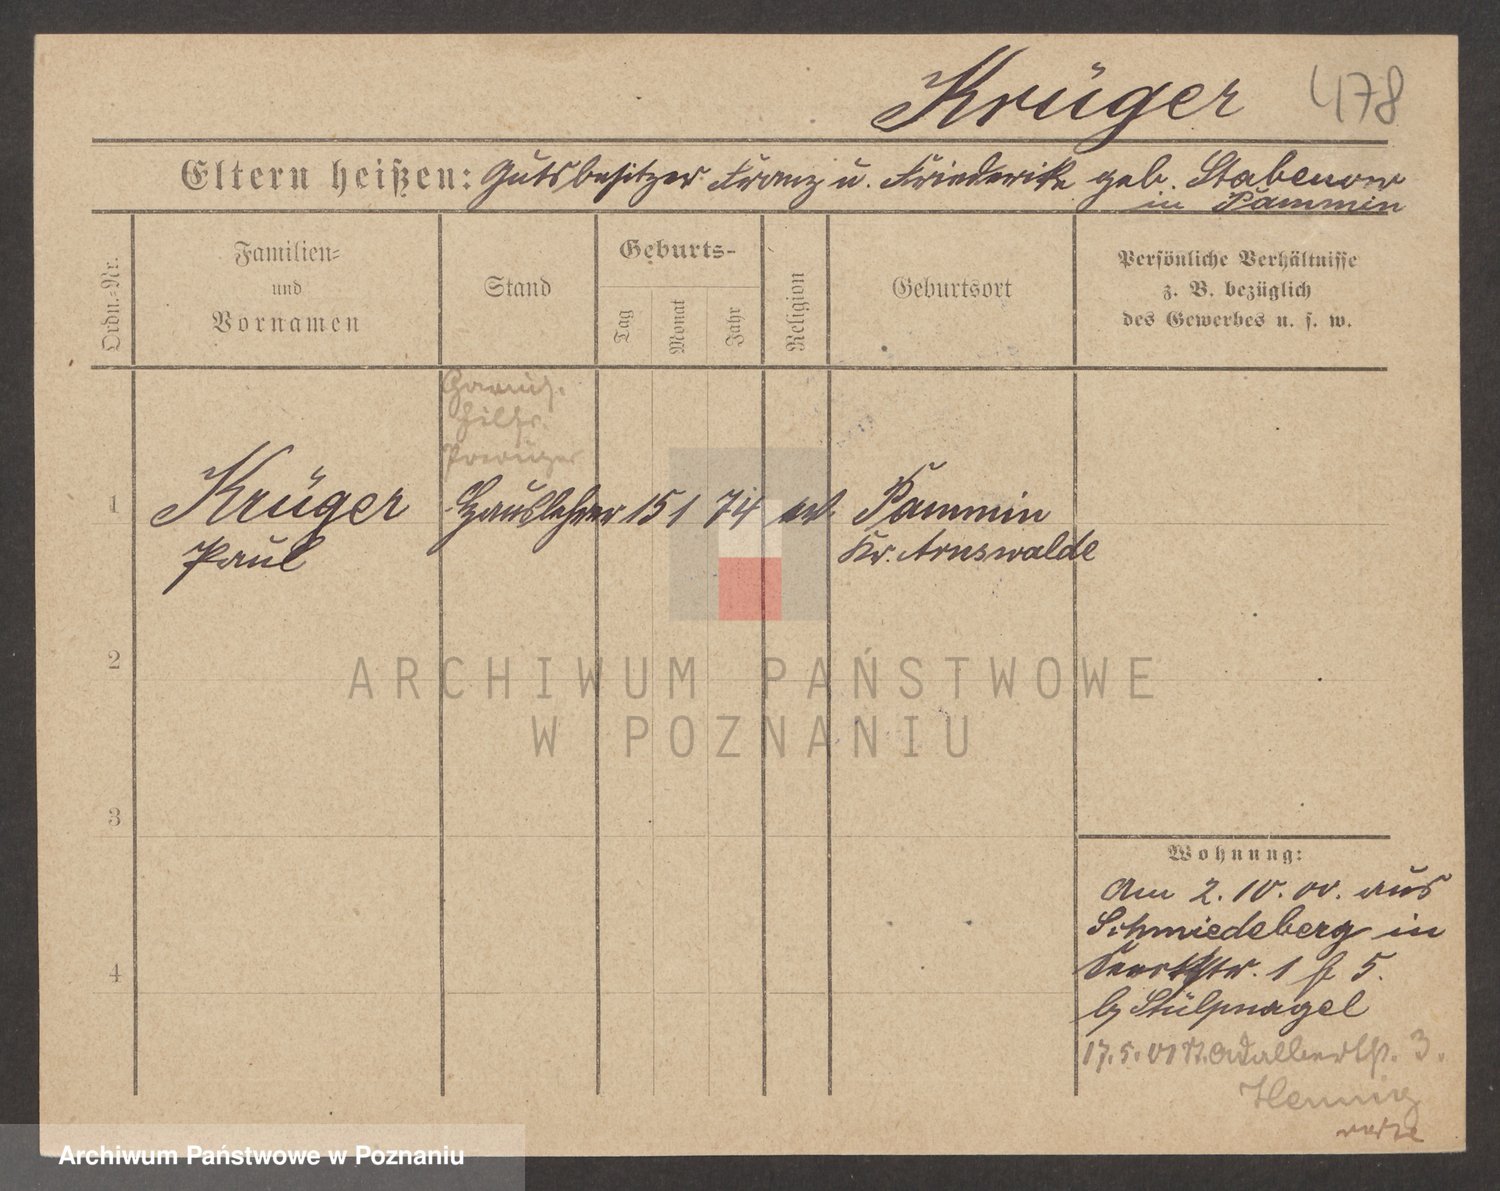 Krüger 478
Eltern heißen: Gutsbesitzer Franz u. Friederike geb. Stabenow
in Pammin
Ordn.=Nr.
Familien=
und
Vornamen
Stand
Geburts-
Tag
Monat
Jahr
Religion
Geburtsort
Persönliche Verhältnisse
z. B. bezüglich
des Gewerbes u. s. w.
1 Krüger Hauslehrer 15 1 74 ev. Pammin
Paul Kr. Arnswalde
2
3
4
ARCHIWUM PAŃSTWOWE
W POZNANIU
Wohnung:
Am 2. 10. 00. aus
Schmiedeberg in
1 5.
b/ Stülpnagel
17. 5. 01 3.
Hennig
Archiwum Państwowe w Poznaniu